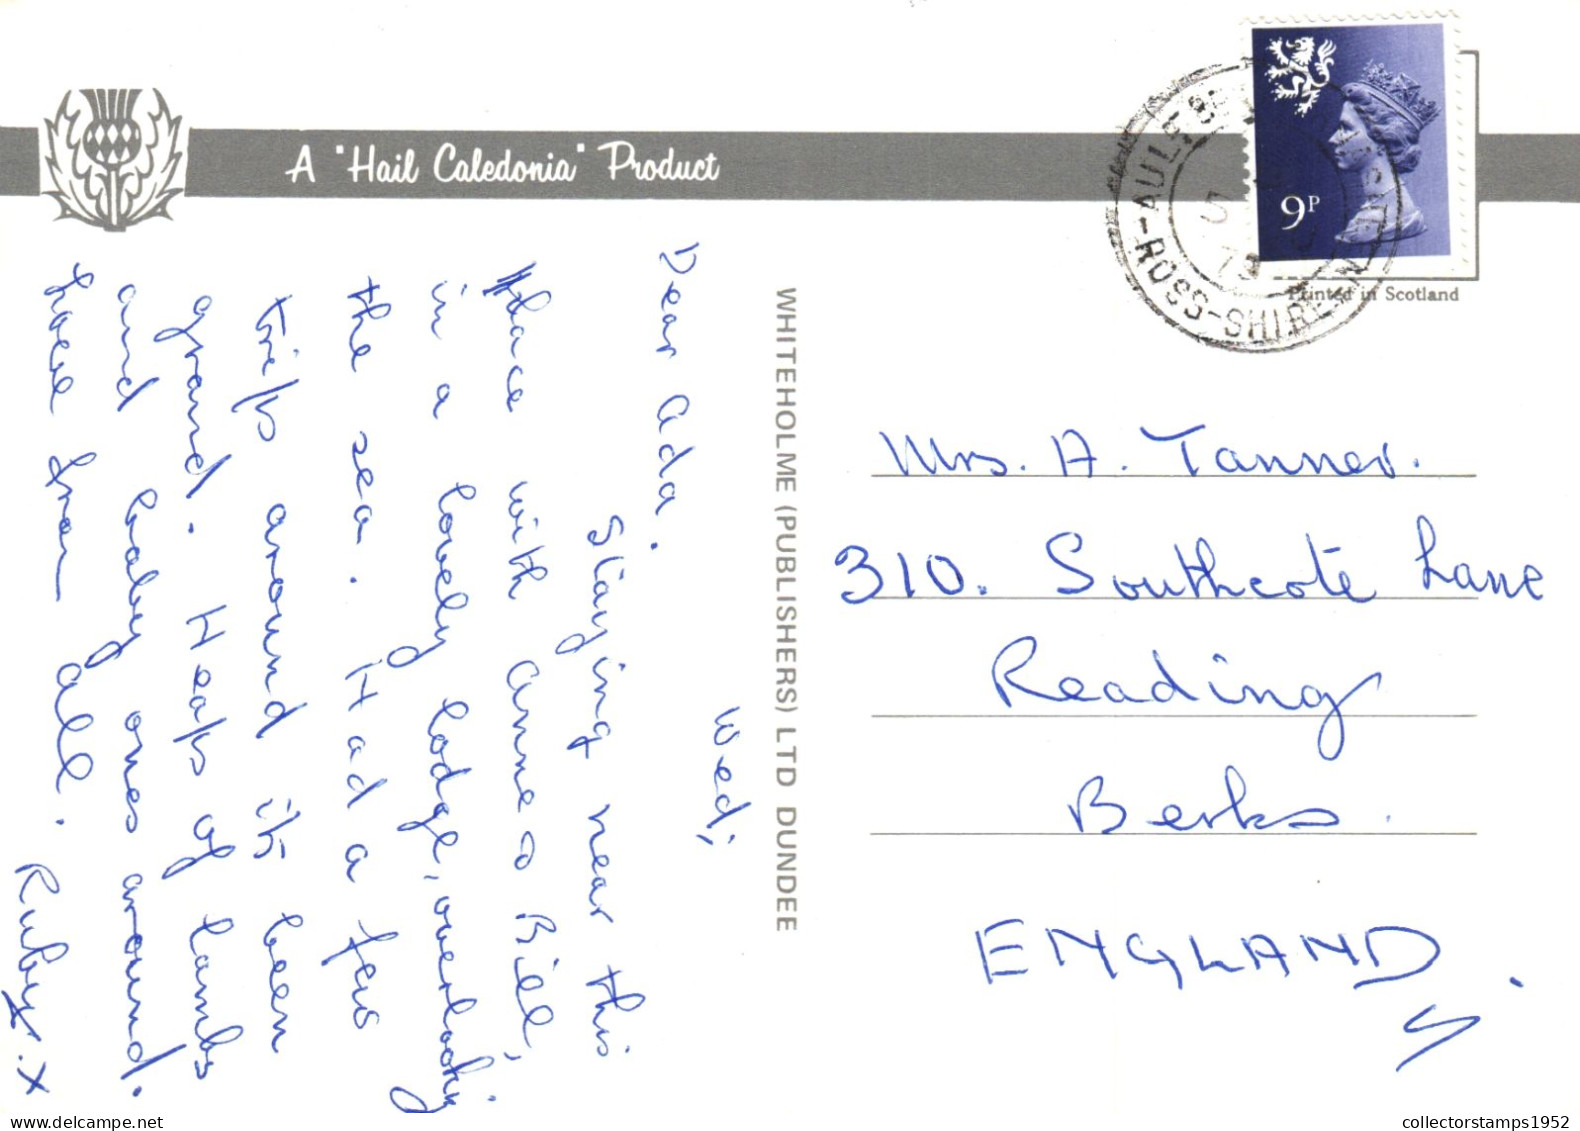 A "Hail Caledonia" Product
9P
AULTBEA
ROSS-SHIRE
5
Printed in Scotland
WHITEHOLME (PUBLISHERS) LTD DUNDEE
Wed;
Dear Ada.
Staying near this
place with Anne & Bill,
in a lovely lodge, overlooking
the sea. Had a few
trips around it's been
grand. Heaps of lambs
and baby ones around.
Love from all.
Ruby. x
Mrs. A. Tanner.
310. Southcote Lane
Reading
Berks.
ENGLAND.
collectorstamps1952